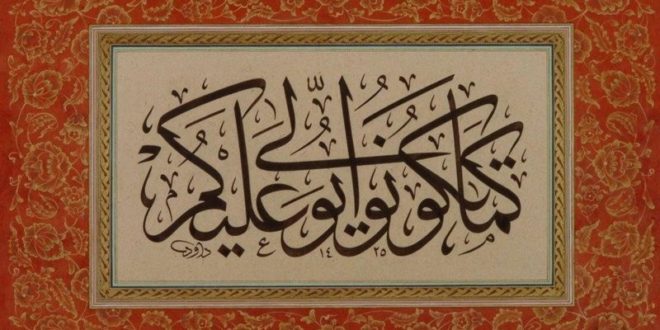 كما تكونوا يولى عليكم
١٤٢٥ داود